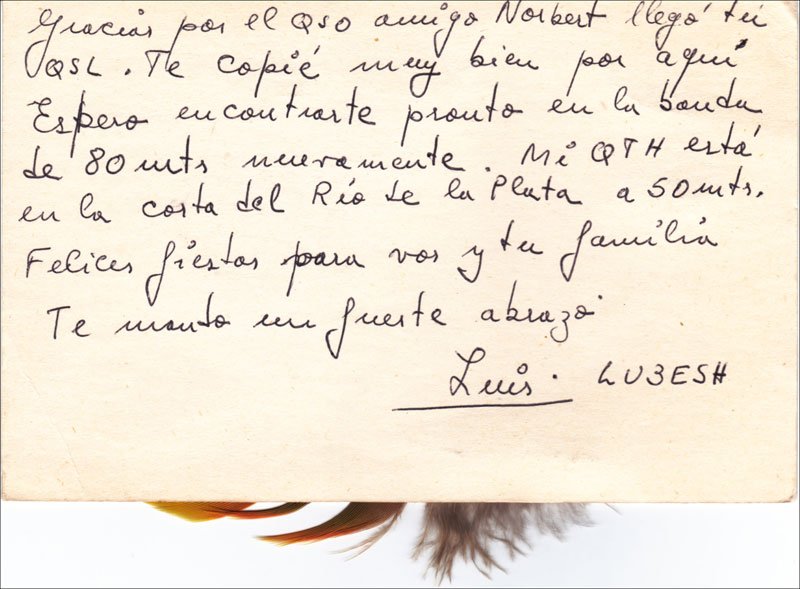 Gracias por el QSO amigo Norbert llegó tú
QSL. Te copié muy bien por aquí
Espero encontrarte pronto en la banda
de 80 mts nuevamente. Mi QTH está
en la costa del Río de la Plata a 50 mts.
Felices fiestas para vos y tu familia
Te mando un fuerte abrazo
Luis. LU3ESH